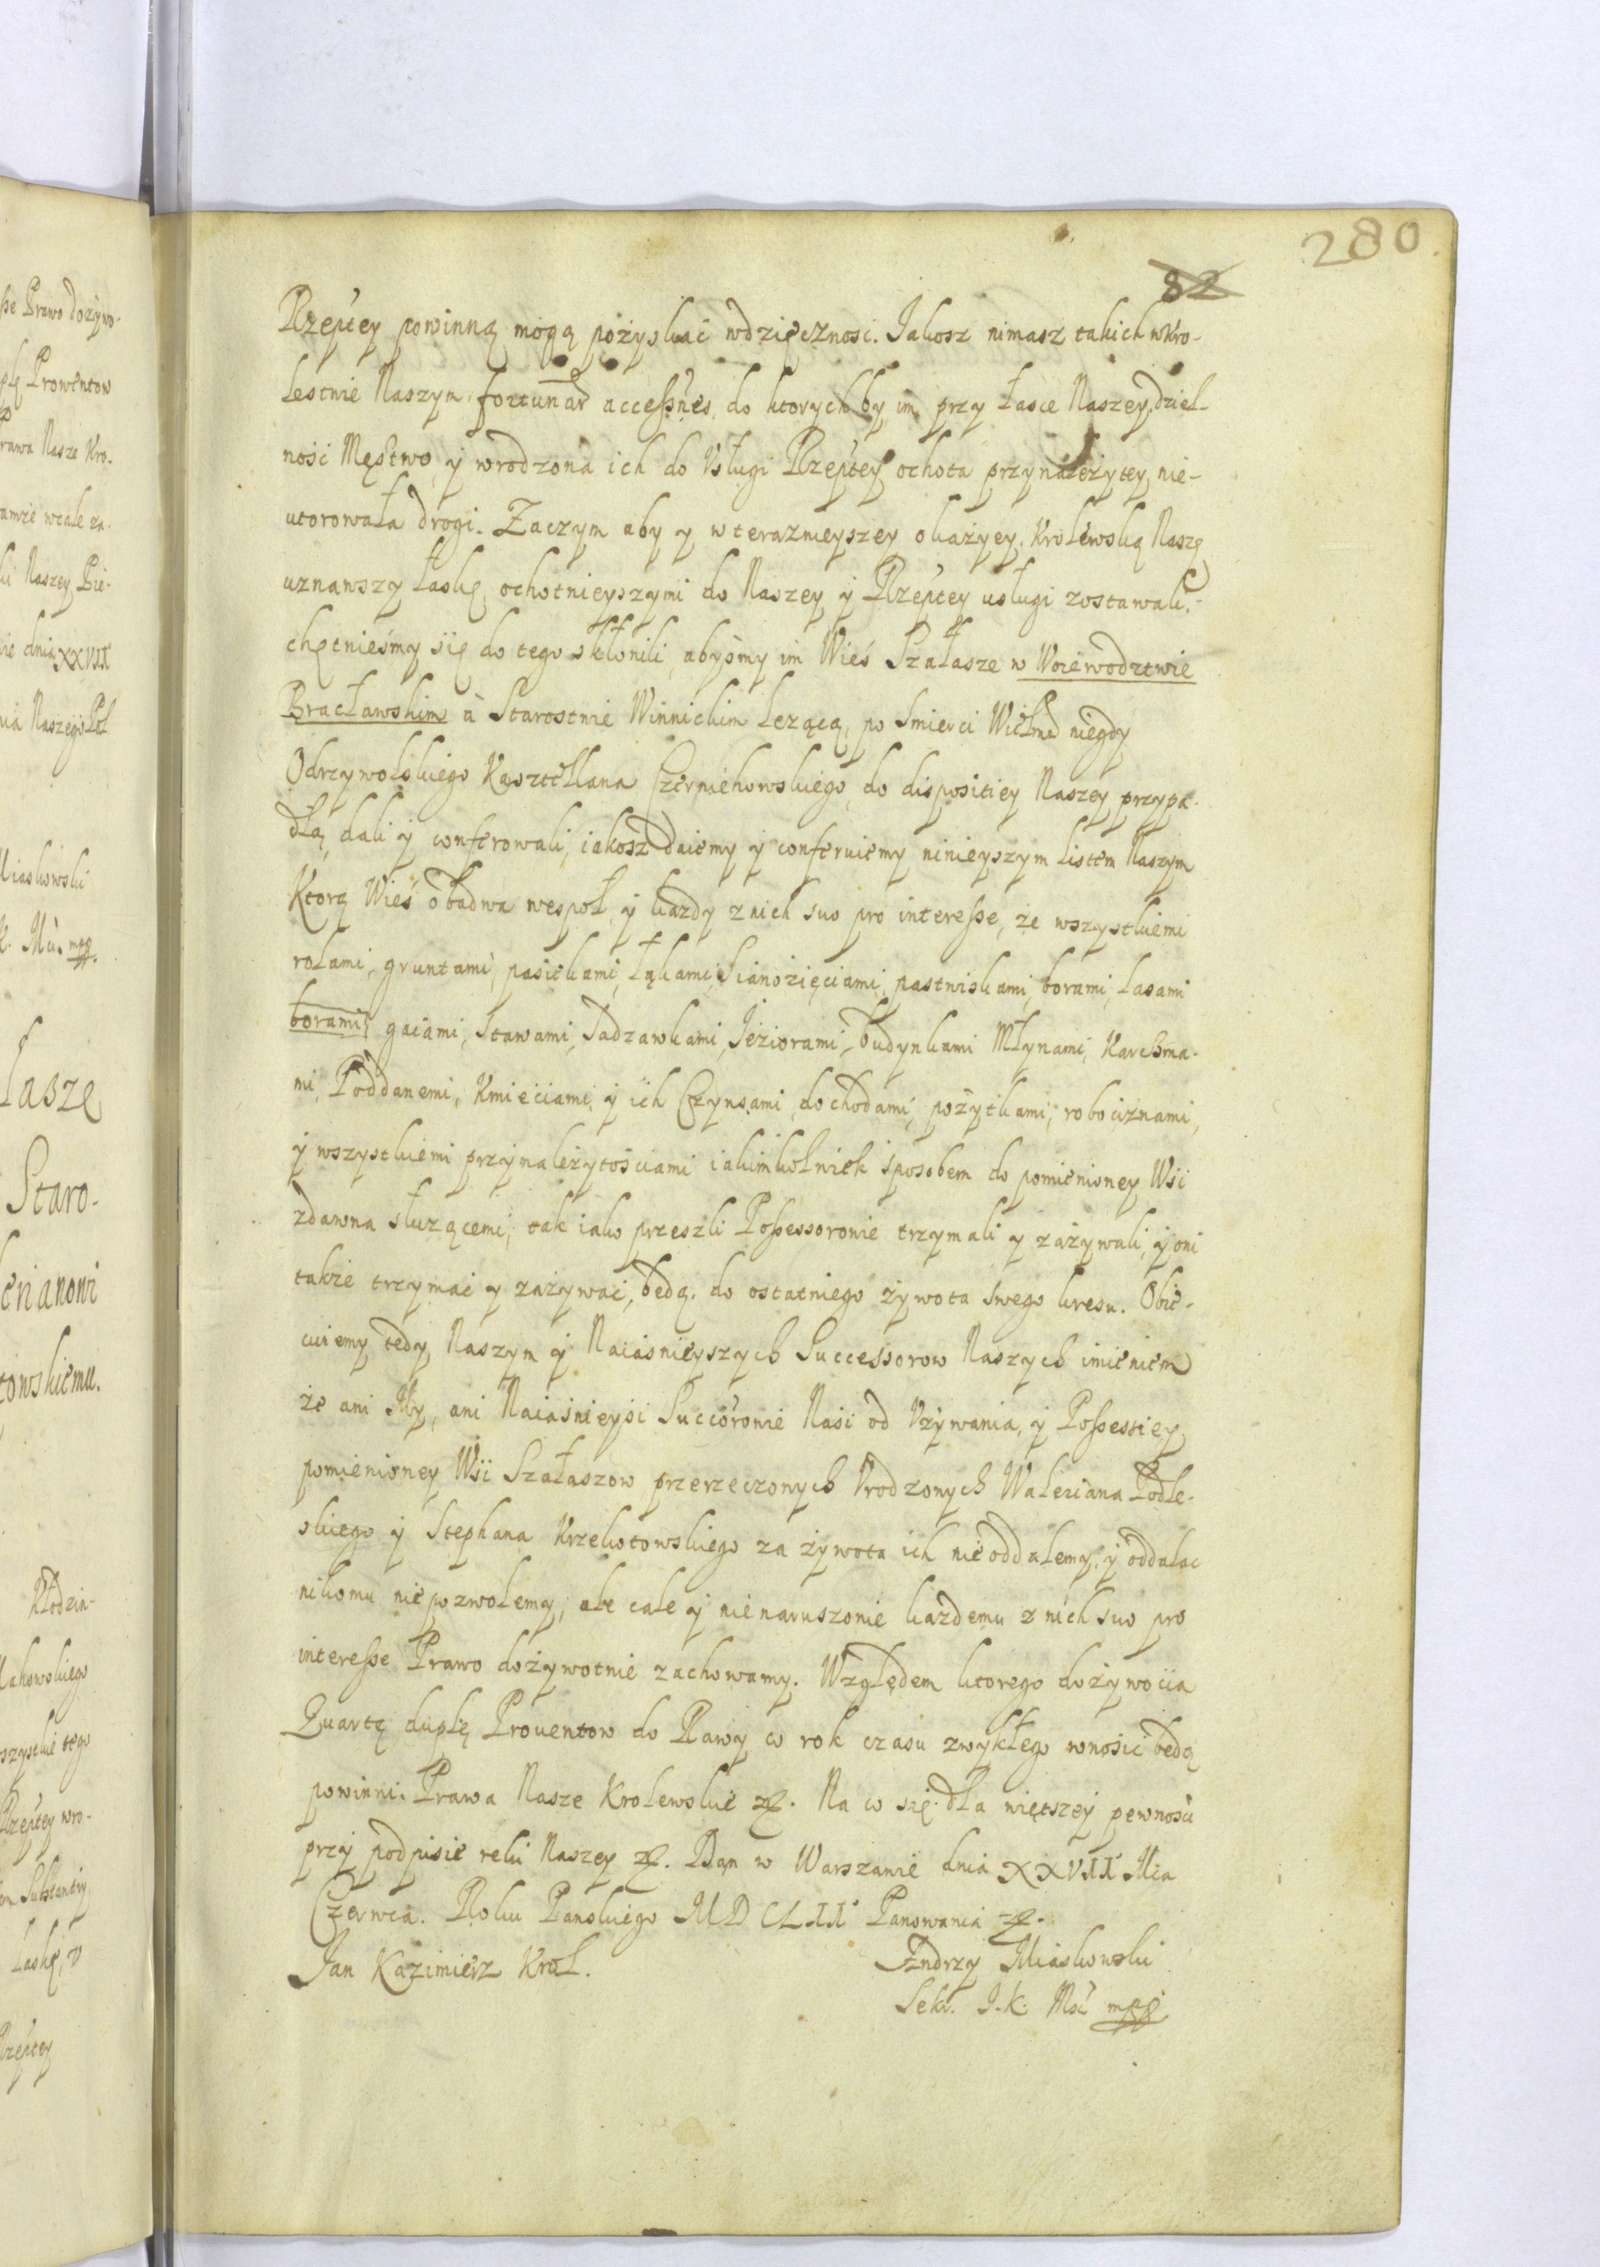 280
82
Rzeptey powinną mogą pozyskać wdzięcznosć. Jakosz nimasz takich w Kro-
lestwie Naszym fortunar accessus, do ktorych by im przy łasce Naszey, dziel-
ność Męstwo, y wrodzona ich do Usługi Rzeptey ochota przynależytey nie-
utorowała drogi. Zaczym aby y w terazneyszey okazyey, Krolewską Naszę
uznawszy łaskę, ochotnieyszymi do Naszey y Rzeptey usługi zostawali,-
chętnieśmy się do tego skłonili, abyśmy im Wieś Szałasze w Woiewodztwie
Bracławskim à Starostwie Winnickim lezącą, po Smierci Wielmo niegdy
Odrzywolskiego Kasztellana Czerniehowskiego, do dispositiey Naszey przypa-
dłą, dali y conferowali, iakosz daiemy y conferuiemy ninieyszym listem Naszym
Ktorą Wieś obadwa wespoł, y kazdy z nich suo pro interesse, ze wszystkiemi
rolami, gruntami, pasiekami, łąkami, Sianożięciami, pastwiskami, borami, lasami
borami, gaiami, Stawami, Sadzawkami, Jeziorami, budynkami Młynami, Karchma-
mi, Poddanemi, Kmiećiami, y ich Czynsami, dochodami, pożytkami, robociznami,
y wszystkiemi przynależytościami iakimkolwiek sposobem do pomienioney Wsi
zdawna słuzącemi, tak iako przeszli Possessorowie trzymali y zażywali, y oni
także trzymać y zażywać, będą. do ostatniego żywota swego kresu. Obie-
cuiemy tedy Naszym y Naiasnieyszych Successorow Naszych imieniem
że ani My, ani Naiaśnieyśi Succorowie Naśi od Używania, y Possessiey
pomienioney Wśi Szałaszow przerzeczonych Urodzonych Waleriana Podle-
skiego y Stephana Krzekotowskiego za żywota ich nie oddalemy, y oddalac
nikomu nie pozwolemy, ale całe y nienaruszonie kazdemu z nich suo pro
interesse Prawo dożywotnie zachowamy. Względem ktorego dożywocia
Quartę duplę Prouentow do Rawy co rok czasu zwykłego wnosić będą
powinni. Prawa Nasze Krolewskie etc. Na co się dla więtszey pewnośći
przy podpisie ręki Naszey etc. Dan w Warszawie dnia XXVII Mca
Czerwca. Roku Panskiego MDCLII Panowania etc.
Jan Kazimierz Krol.
Andrzy Miaskowski
Sekr. J. K. Mći mpp